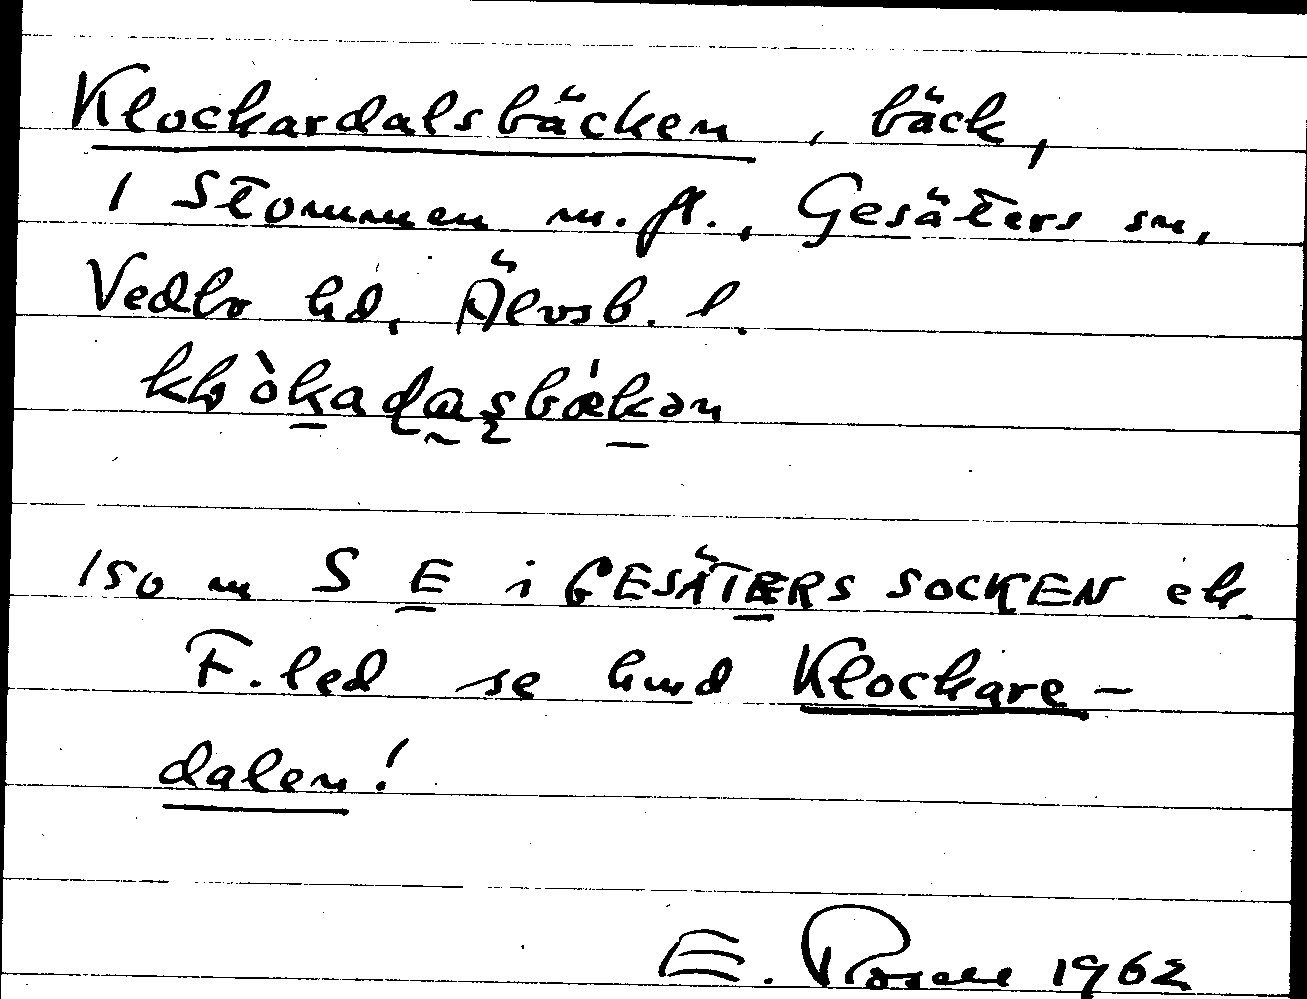 Klockardalsbäcken, bäck,
1 Stommen m. fl., Gesäters sn,
Vedbo hd, Älvsb. l.
150 m S E i GESÄTERS SOCKEN ek
F. led se hmd Klockare-
dalen!
E. Rosell 1962